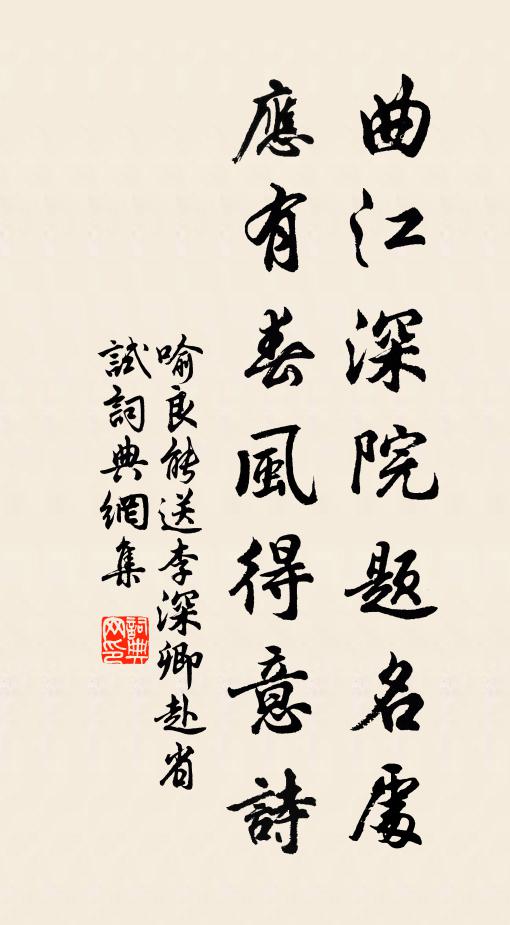 曲江深院题名處
應有春風得意詩
喻良能送李深卿赴省
試詞典網集
詞典
网印